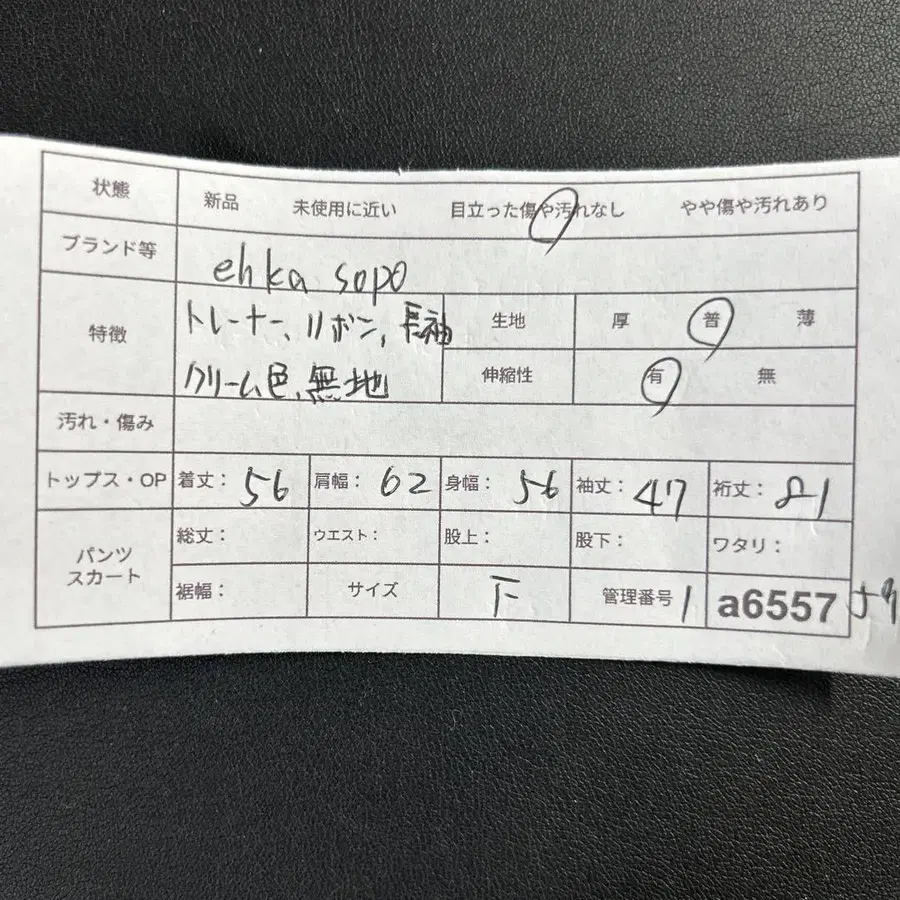 状態 新品 未使用に近い 目立った傷や汚れなし やや傷や汚れあり
ブランド等 ehka sopo
特徴 トレーナー、リボン、長袖 生地 厚 普 薄
クリーム色、無地 伸縮性 有 無
汚れ・傷み
トップス・OP 着丈: 56 肩幅: 62 身幅: 56 袖丈: 47 裄丈: 81
パンツ スカート 総丈: ウエスト: 股上: 股下: ワタリ:
裾幅: サイズ F 管理番号 1 a6557